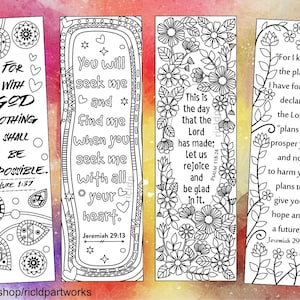 FOR
WITH
GOD
NOTHING
SHALL
BE
You will
seek me
and
find me
when you
seek me
with all
your
heart.
Jeremiah 29:13
This is
the day
that the
Lord
has made;
let us
rejoice
and
be glad
in it.
For I k
the p
I have fo
decla
the Lo
plans
prosper y
and no
to harm y
plans
give yo
hope an
a future
Jeremiah 29:
shop/ricldpartworks